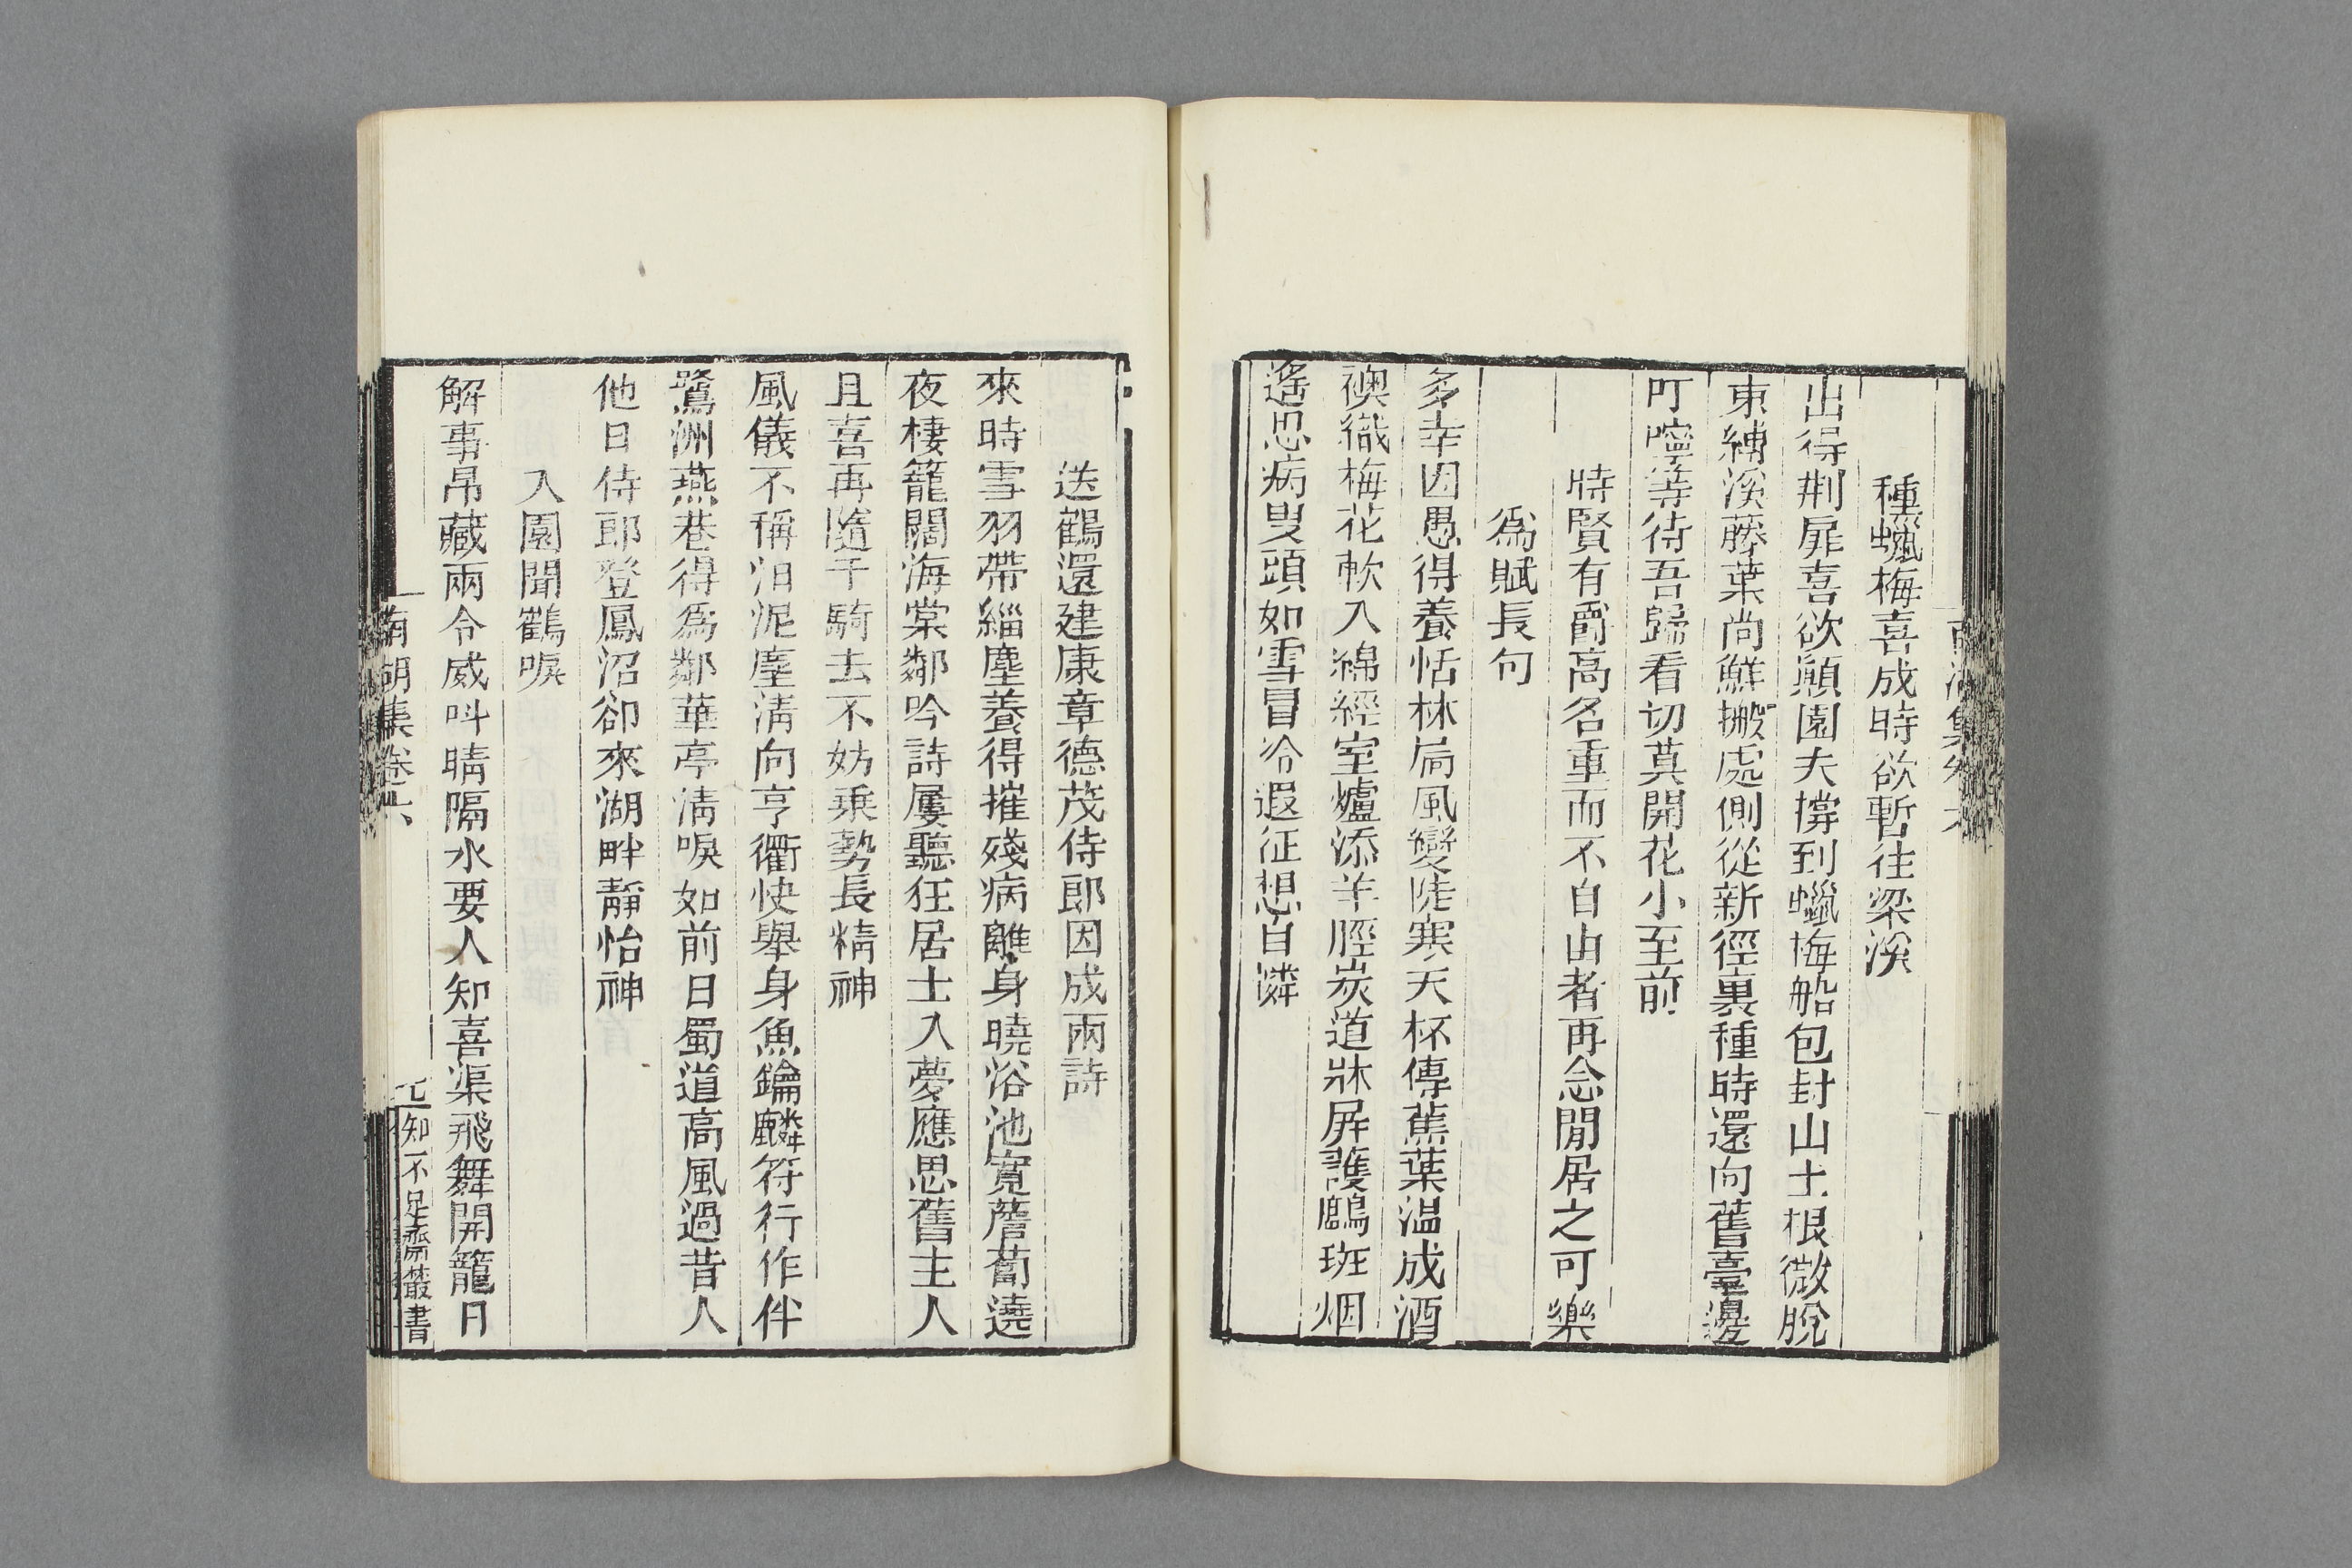 種蠟梅喜成時欲暫往梁溪
出得荆扉喜欲顛園夫撐到蠟梅船包封山土根微脫
東縛溪藤葉尚鮮搬處側從新徑裏種時還向舊臺邊
叮嚀等待吾歸看切莫開花小至前
時賢有爵高名重而不自由者再念閒居之可樂
爲賦長句
多幸因愚得養恬林扃風變陡寒天杯傳蕉葉温成酒
襖織梅花軟入綿經室爐添羊脛炭道牀屏護鷓斑烟
遙思病叟頭如雪冒冷遐征想自憐
送鶴還建康章德茂侍郎因成兩詩
來時雪羽帶緇塵養得摧殘病離身曉浴池寛薝蔔遶
夜棲籠闊海棠鄰吟詩屢聽狂居士入夢應思舊主人
且喜再隨千騎去不妨乗勢長精神
風儀不稱汨泥塵淸向亨衢快舉身魚鑰麟符行作伴
鷺洲燕巷得爲鄰華亭淸唳如前日蜀道高風過昔人
他日侍郎登鳳沼卻來湖畔靜怡神
入園聞鶴唳
解事帛藏兩令威呌晴隔水要人知喜渠飛舞開籠日
南湖集卷六
七
知不足齋叢書